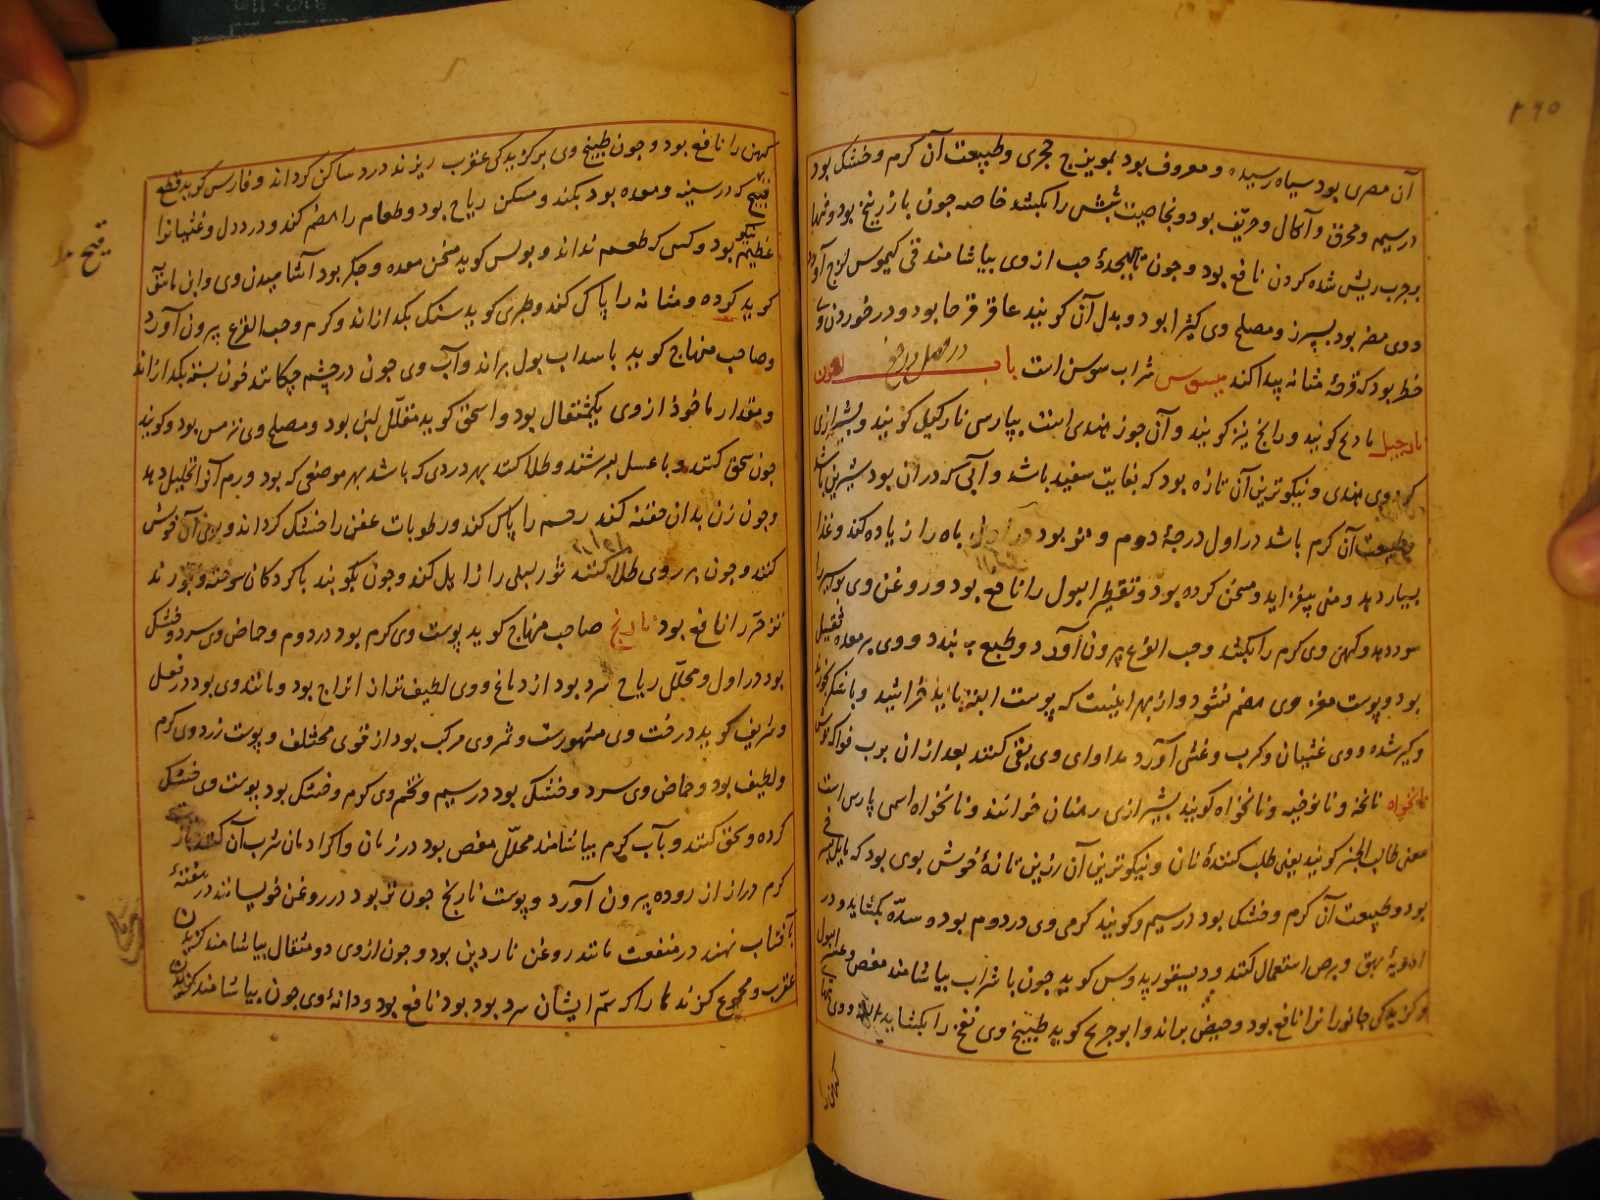 ۲۶۵
آن مصری بود سیاه رسیده و معروف بود بمویزج حجری و طبیعت آن کرم و خشک بود
در سیم و محرق و اکال و حریف بود و بخاصیت شپش را بکشد خاصه چون با زرنیخ بود و تنها
بر جرب ریش شده کردن نافع بود و چون پانجده حب از وی بیاشامند قی کیموس لزج آورد
و وی مضر بود بسپرز و مصلح وی کثیرا بود و بدل آن کویند عاقرقرحا بود و در خوردن وی
خطر بود که قرحه مثانه پیدا کند میسوس شراب سوس است باب النون
نارجیل نادج کویند و رانج نیز کویند و آن جوز هندی است بپارسی نارکیل کویند و بشیرازی
وی هندی و نیکوترین آن تازه بود که بغایت سفید باشد و آبی که در ان بود شیرین باشد
و طبیعت آن کرم باشد در اول درجه دوم و تر بود در اول باه را زیاده کند و غذا
بسیار دهد و منی بیفزاید و مسخن کرده بود و تقطیر البول را نافع بود و روغن وی بواسیر را
سود دهد و کهن وی کرم را بکشد و حب القرع بیرون آورد و طبع ببندد و وی بر معده ثقیل
بود و پوست مغز وی هضم نشود و از بهر اینست که پوست البته باید خراشید و با شکر خورند
و کیر شده و وی غثیان و کرب و غشی آورد مداوای وی بقی کنند بعد از ان برب فواکه ترش
نانخواه نانخه و نانوخیه و نانخواه کویند بشیرازی زنیان خوانند و نانخواه اسمی پارسی است
معنی طالب الخبز کویند یعنی طلب کننده نان و نیکوترین آن رزین تازه خوش بوی بود که مایل
بود و طبیعت آن کرم و خشک بود در سیم و کویند کرمی وی در دوم بود و سده بکشاید و در
ادویه بهق و برص استعمال کنند و دیسقوریدوس کوید چون با شراب بیاشامند مغص و عسر البول
و کزیدکی جانورانرا نافع بود و حیض براند و ابو جریج کوید طبیخ وی نفخ را بکشاید و وی تبهای
کهن را
کهن را نافع بود و چون طبیخ وی بر کزیدکی عقرب ریزند درد ساکن کرداند و فارسی کوید قطع
قیح که در سینه و معده بود بکند و مسکن ریاح بود و طعام را هضم کند و درد دل و غثیانرا
عظیم نیکو بود و کسی که طعم نداند و بولس کوید مسخن معده و جکر بود آشامیدن وی و ابن ماسویه
کوید کرده و مثانه را پاک کند و طبری کوید سنک بکدازاند و کرم و حب القرع بیرون آورد
و صاحب منهاج کوید با سداب بول براند و آب وی چون در چشم چکانند خون بسته بکدازاند
و مقدار ماخوذ از وی یکمثقال بود و اسحق کوید مقلل لبن بود و مصلح وی ترمس بود و کویند
چون سحق کنند و با عسل بسرشند و طلا کنند بهر دردی که باشد بهر موضعی که بود و ورم آنرا تحلیل دهد
و چون زن بدان حقنه کند رحم را پاک کند و رطوبات عفن را خشک کرداند و بوی آن خوش
کند و چون بر روی طلا کنند ثور لبنی را زایل کند و چون بکوبند با کردکان سوخته و بخورند
تزحر را نافع بود نارنج صاحب منهاج کوید پوست وی کرم بود در دوم و حماض وی سرد و خشک
بود در اول و محلل ریاح سرد بود از دماغ و وی لطیف تر از اترج بود و مانند وی بود در فعل
و شریف کوید درخت وی مشهورست و ثمر وی مرکب بود از قوی مختلف و پوست زرد وی کرم
و لطیف بود و حماض وی سرد و خشک بود در سیم و تخم وی کرم و خشک بود پوست وی خشک
کرده و سحق کنند و بآب کرم بیاشامند محلل مغص بود در زمان و اکر ادمان شرب آن کنند باز
کرم دراز از روده بیرون آورد و پوست نارنج چون تر بود در روغن خویسانند در سه هفته
بآفتاب نهند در منفعت مانند روغن ناردین بود و چون از وی دو مثقال بیاشامند کزیدن
عقرب و مجموع کزندها را که سم ایشان سرد بود بود نافع بود و دانه وی چون بیاشامند کزیدن
قیح